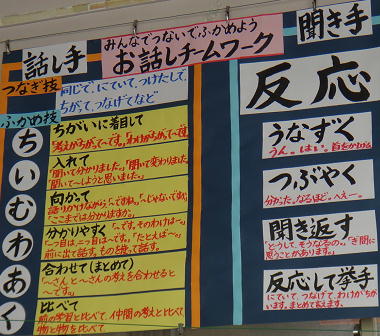 みんなでつないで、ふかめよう
お話しチームワーク
話し手
つなぎ技
同じで、にていて、つけたして、
ちがって、つなげてなど
ふかめ技
ち
ちがいに着目して
い
入れて
「聞いて分かりました。」「聞いて変わりました。」
「聞いて～しようと思いました。」
む
向かって
「ここまでは分かりますか。」
わ
分かりやすく
前に出て話す。ものを使って話す。
あ
合わせて（まとめて）
「～さんと～さんの考えを合わせると
～です。」
く
比べて
前の学習と比べて、仲間の考えと比べて
物と物を比べて
聞き手
反応
うなずく
うん。はい。首をかたむける
つぶやく
分かった。なるほど。へえー。
聞き返す
「どうして、そうなるの。」ぎ問に
思うことがあります。」
反応して挙手
にていて、つなげて、わけがちが
います。まとめて言えます。